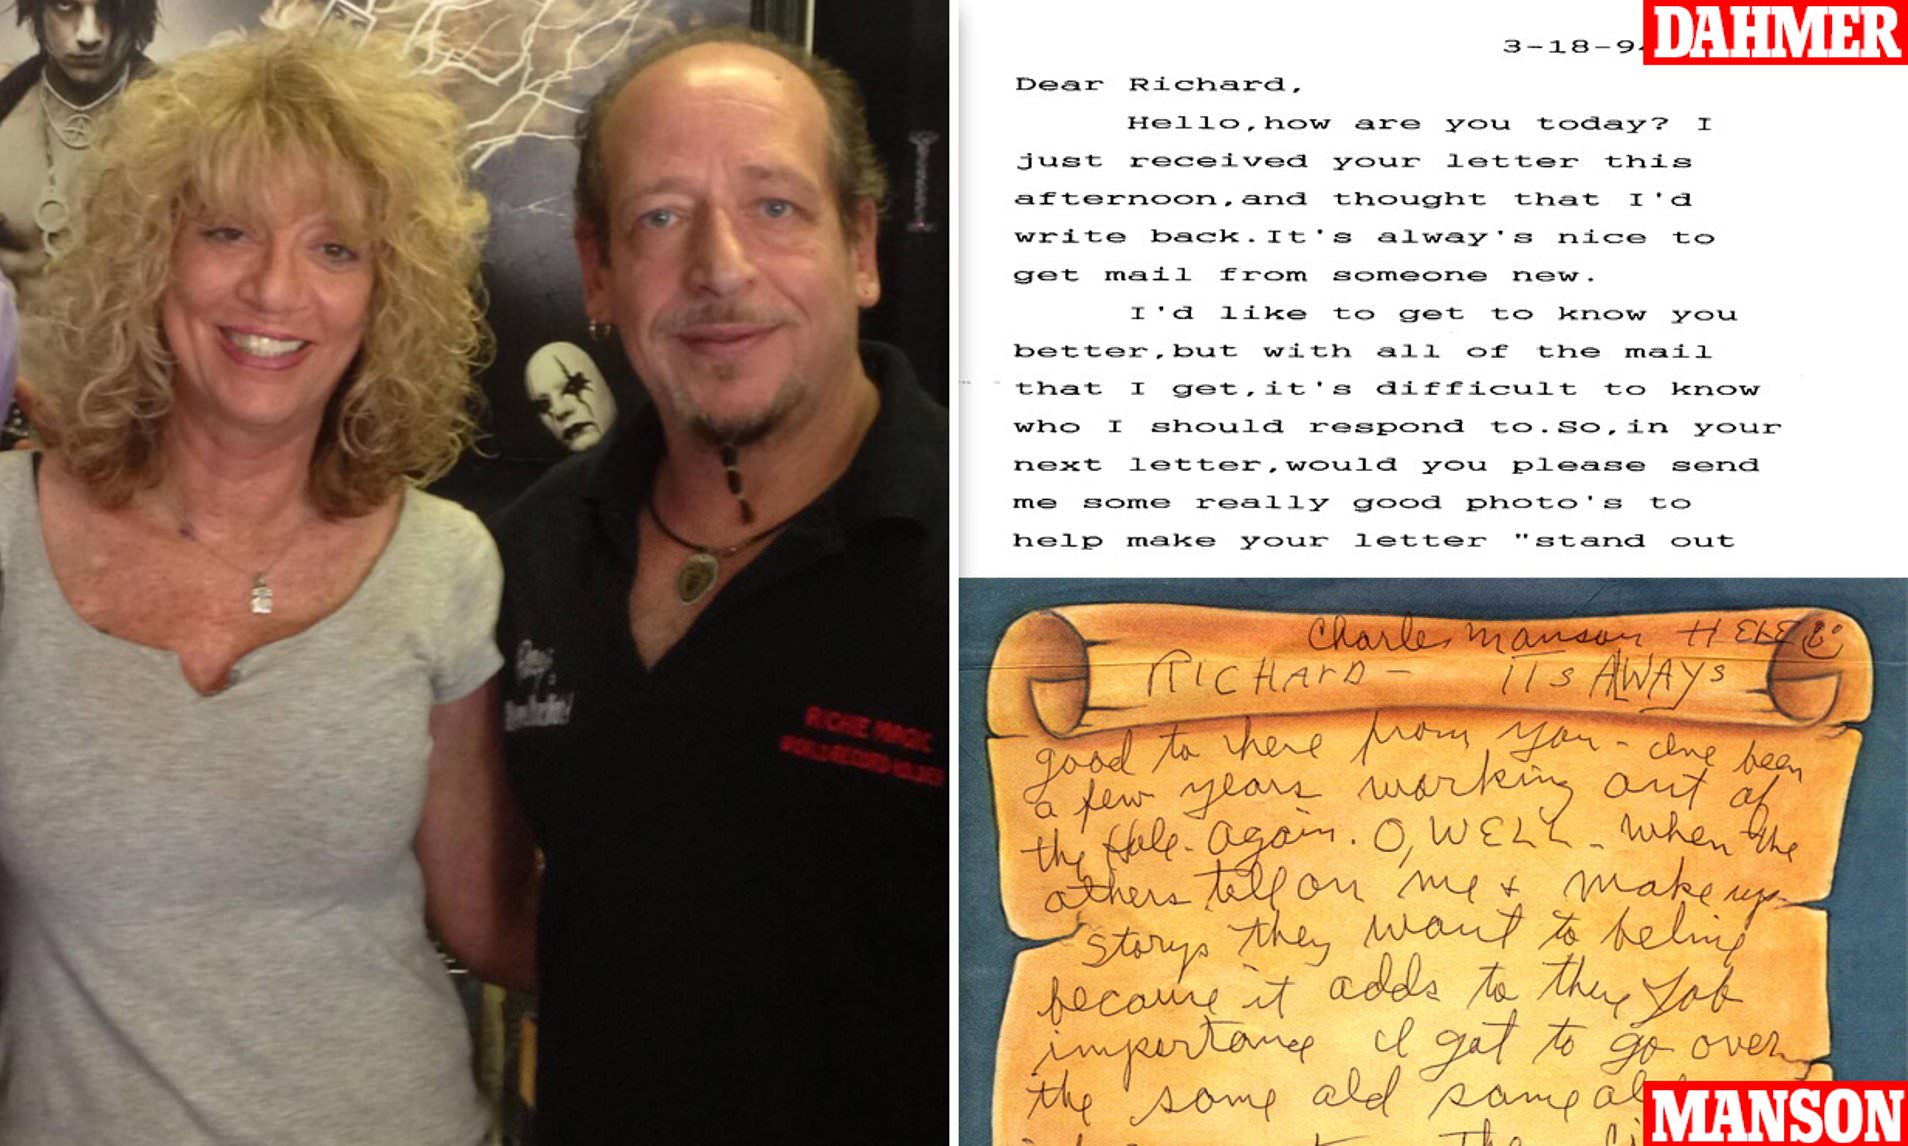 RICHIE MAGIC
WORLD RECORD HOLDER
DAHMER
3-18-9
Dear Richard,
Hello,how are you today? I
just received your letter this
afternoon,and thought that I'd
write back.It's alway's nice to
get mail from someone new.
I'd like to get to know you
better,but with all of the mail
that I get,it's difficult to know
who I should respond to.So,in your
next letter,would you please send
me some really good photo's to
help make your letter "stand out
Charles Manson HERE
RICHARD - ITs ALWAYs
good to here from you - Ive been
a few years working out of
the Hole. Again. O, WELL - when the
others tell on me + make up
storys they want to belive
because it adds to they Job
importance I got to go over
the some old some ol
MANSON